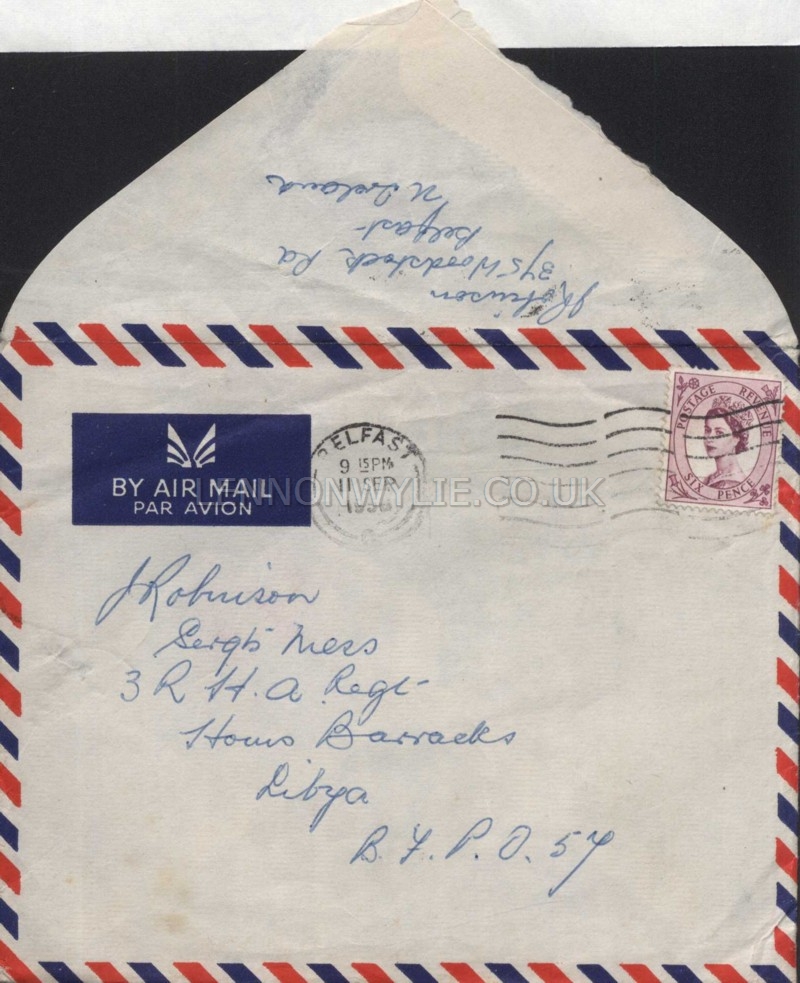 N Ireland
Belfast
375 Woodstock Rd
J Robinson
POSTAGE REVENUE
SIX PENCE
BELFAST
9 15 PM
11 SEP
BY AIR MAIL
PAR AVION
LENNONWYLIE.CO.UK
J Robinson
Sergts Mess
3 R H. A Regt
Homs Barracks
Libya
B. F. P. O. 57